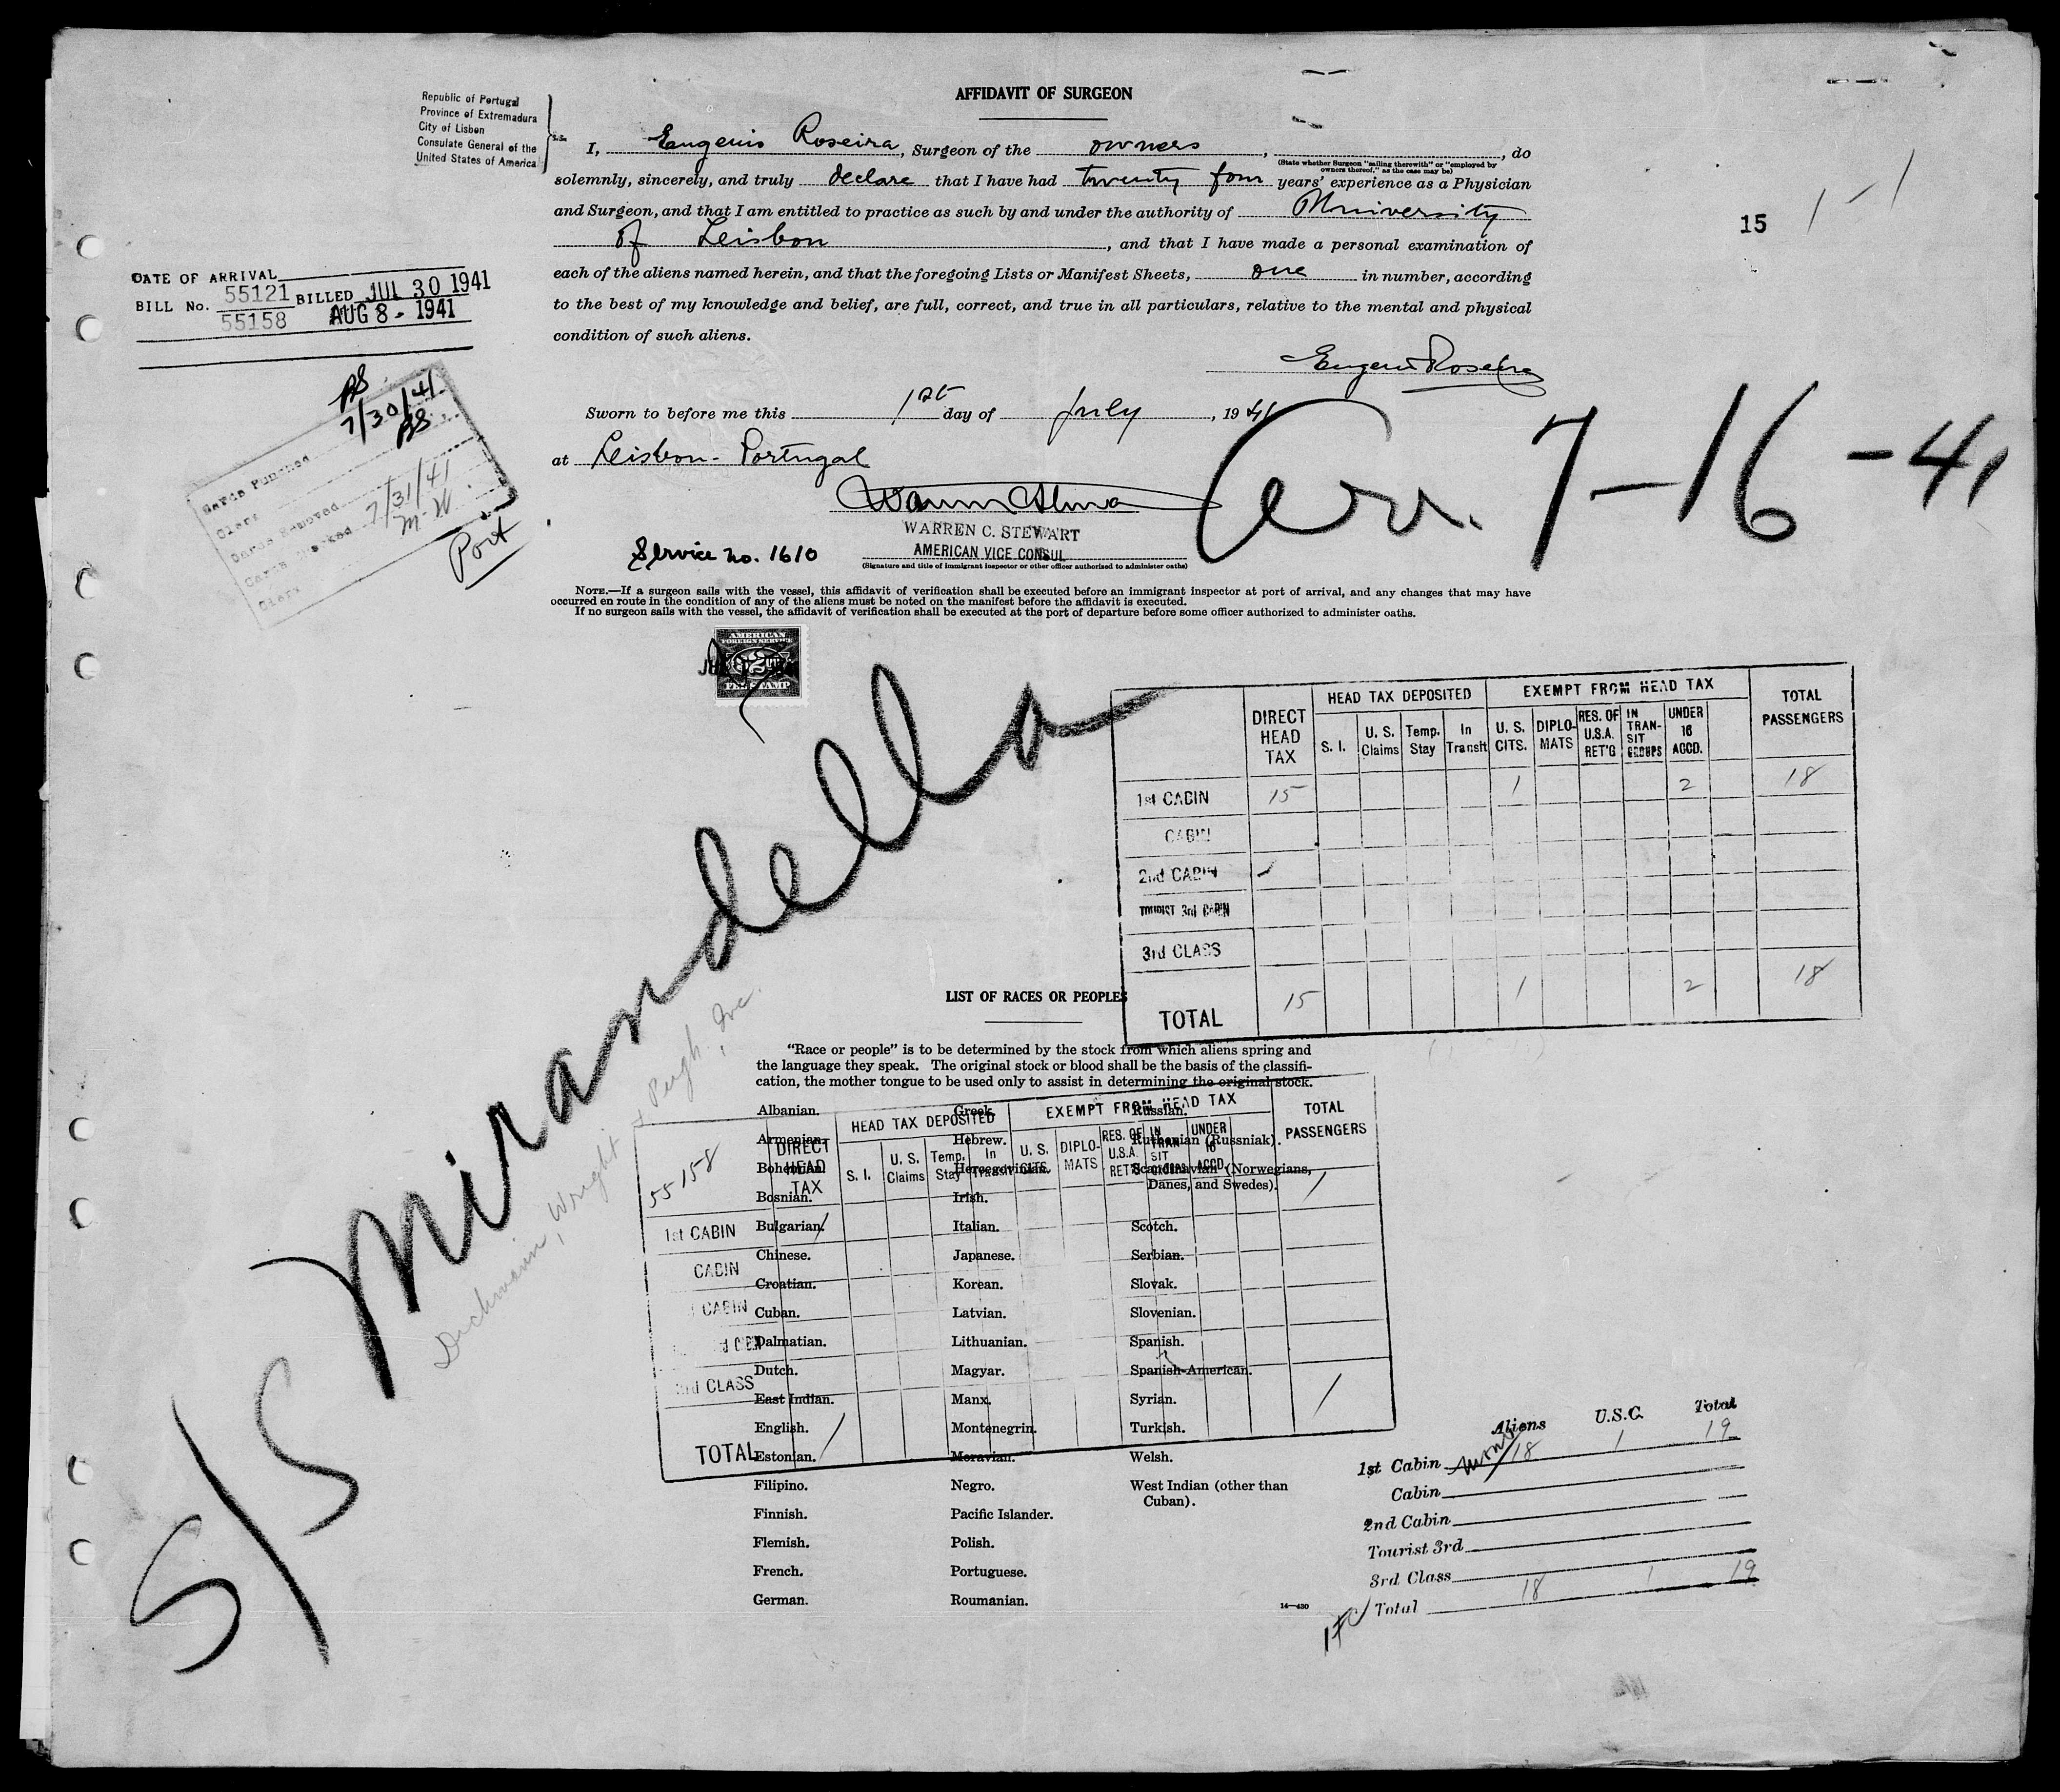 AFFIDAVIT OF SURGEON
Republic of Portugal
Province of Extremadura
City of Lisbon
Consulate General of the
United States of America
I, Eugenio Roseira, Surgeon of the owners, , do
(State whether Surgeon "sailing therewith" or "employed by
owners thereof," as the case may be)
solemnly, sincerely, and truly declare that I have had twenty four years' experience as a Physician
and Surgeon, and that I am entitled to practice as such by and under the authority of University
of Leisbon, and that I have made a personal examination of
each of the aliens named herein, and that the foregoing Lists or Manifest Sheets, one in number, according
to the best of my knowledge and belief, are full, correct, and true in all particulars, relative to the mental and physical
condition of such aliens.
15 1-1
DATE OF ARRIVAL
BILL No. 55121 BILLED JUL 30 1941
55158 AUG 8 - 1941
Eugenio Roseira
Sworn to before me this 1st day of July, 1941
at Leisbon - Portugal
Arr. 7-16-41
7/30/41
Cards Punched
Clerk
Cards Removed
Cards Checked 7/31/41
Clerk M-W
Port
WARREN C. STEWART
AMERICAN VICE CONSUL
(Signature and title of immigrant inspector or other officer authorized to administer oaths)
Service no. 1610
NOTE.—If a surgeon sails with the vessel, this affidavit of verification shall be executed before an immigrant inspector at port of arrival, and any changes that may have
occurred en route in the condition of any of the aliens must be noted on the manifest before the affidavit is executed.
If no surgeon sails with the vessel, the affidavit of verification shall be executed at the port of departure before some officer authorized to administer oaths.
AMERICAN
FOREIGN SERVICE
FEE STAMP
S/S Mirandella
Wright & Pugh, Inc.
DIRECT HEAD TAX HEAD TAX DEPOSITED EXEMPT FROM HEAD TAX TOTAL PASSENGERS
S. I. U. S. Claims Temp. Stay In Transit U. S. CITS. DIPLO-MATS RES. OF U.S.A. RET'G IN TRAN-SIT GROUPS UNDER 16 ACCD.
1st CABIN 15 1 2 18
CABIN
2nd CABIN
TOURIST 3rd CABIN
3rd CLASS
TOTAL 15 1 2 18
LIST OF RACES OR PEOPLES
"Race or people" is to be determined by the stock from which aliens spring and
the language they speak. The original stock or blood shall be the basis of the classifi-
cation, the mother tongue to be used only to assist in determining the original stock.
Albanian.
Armenian.
Bohemian.
Bosnian.
Bulgarian.
Chinese.
Croatian.
Cuban.
Dalmatian.
Dutch.
East Indian.
English.
Estonian.
Filipino.
Finnish.
Flemish.
French.
German.
Greek.
Hebrew.
Herzegovinian.
Irish.
Italian.
Japanese.
Korean.
Latvian.
Lithuanian.
Magyar.
Manx.
Montenegrin.
Moravian.
Negro.
Pacific Islander.
Polish.
Portuguese.
Roumanian.
Russian.
Ruthenian (Russniak).
Scandinavian (Norwegians,
Danes, and Swedes).
Scotch.
Serbian.
Slovak.
Slovenian.
Spanish.
Spanish-American.
Syrian.
Turkish.
Welsh.
West Indian (other than
Cuban).
14—430
55158 DIRECT HEAD TAX HEAD TAX DEPOSITED EXEMPT FROM HEAD TAX TOTAL PASSENGERS
S. I. U. S. Claims Temp. Stay In Transit U. S. CITS. DIPLO-MATS RES. OF U.S.A. RET'G IN TRAN-SIT GROUPS UNDER 16 ACCD.
1st CABIN 1 1
CABIN
CABIN
3rd CLASS
TOTAL 1 1
Aliens U.S.C. Total
1st Cabin 18 1 19
Cabin
2nd Cabin
Tourist 3rd
3rd Class
Total 18 1 19